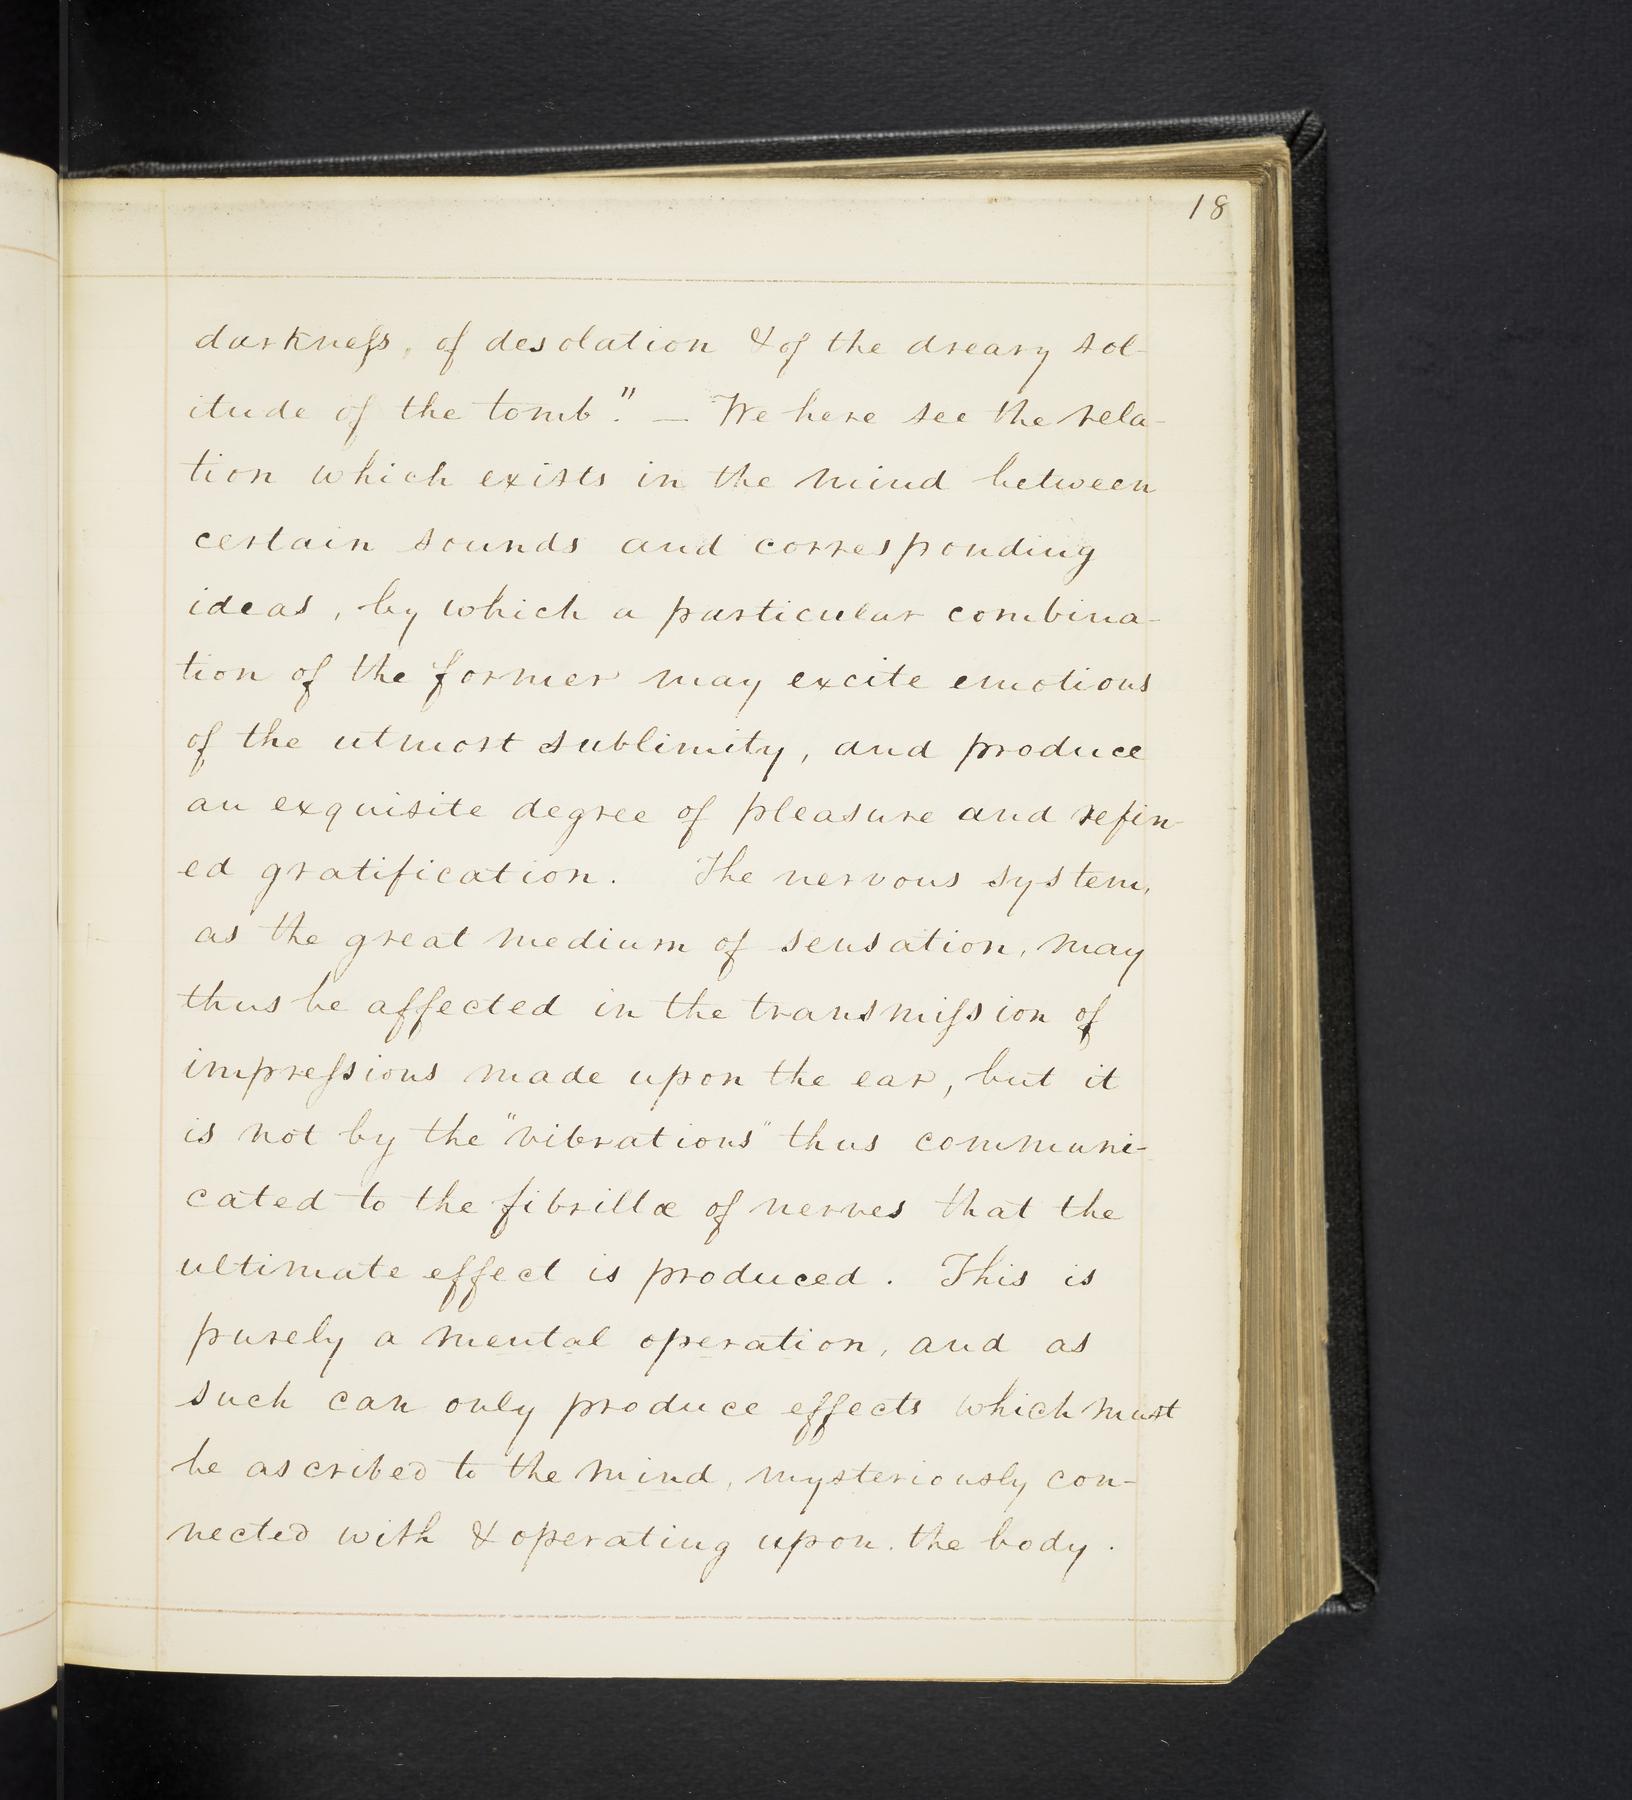 18
darkneſs, of desolation & of the dreary sol-
itude of the tomb". — We here see the rela-
tion which exists in the mind between
certain sounds and corresponding
ideas, by which a particular combina-
tion of the former may excite emotions
of the utmost sublimity, and produce
an exquisite degree of pleasure and refin-
ed gratification. The nervous system,
as the great medium of sensation, may
thus be affected in the transmiſsion of
impreſsions made upon the ear, but it
is not by the "vibrations" thus communi-
cated to the fibrillæ of nerves that the
ultimate effect is produced. This is
purely a mental operation, and as
such can only produce effects which must
be ascribed to the mind, mysteriously con-
nected with & operating upon the body.